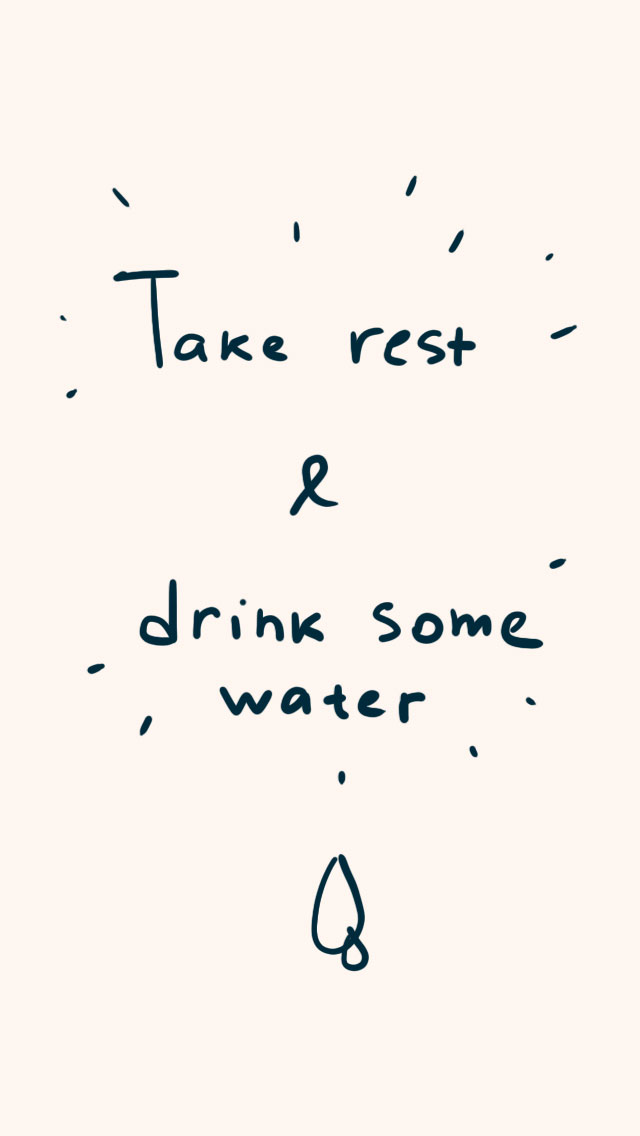 Take rest
&
drink some
water